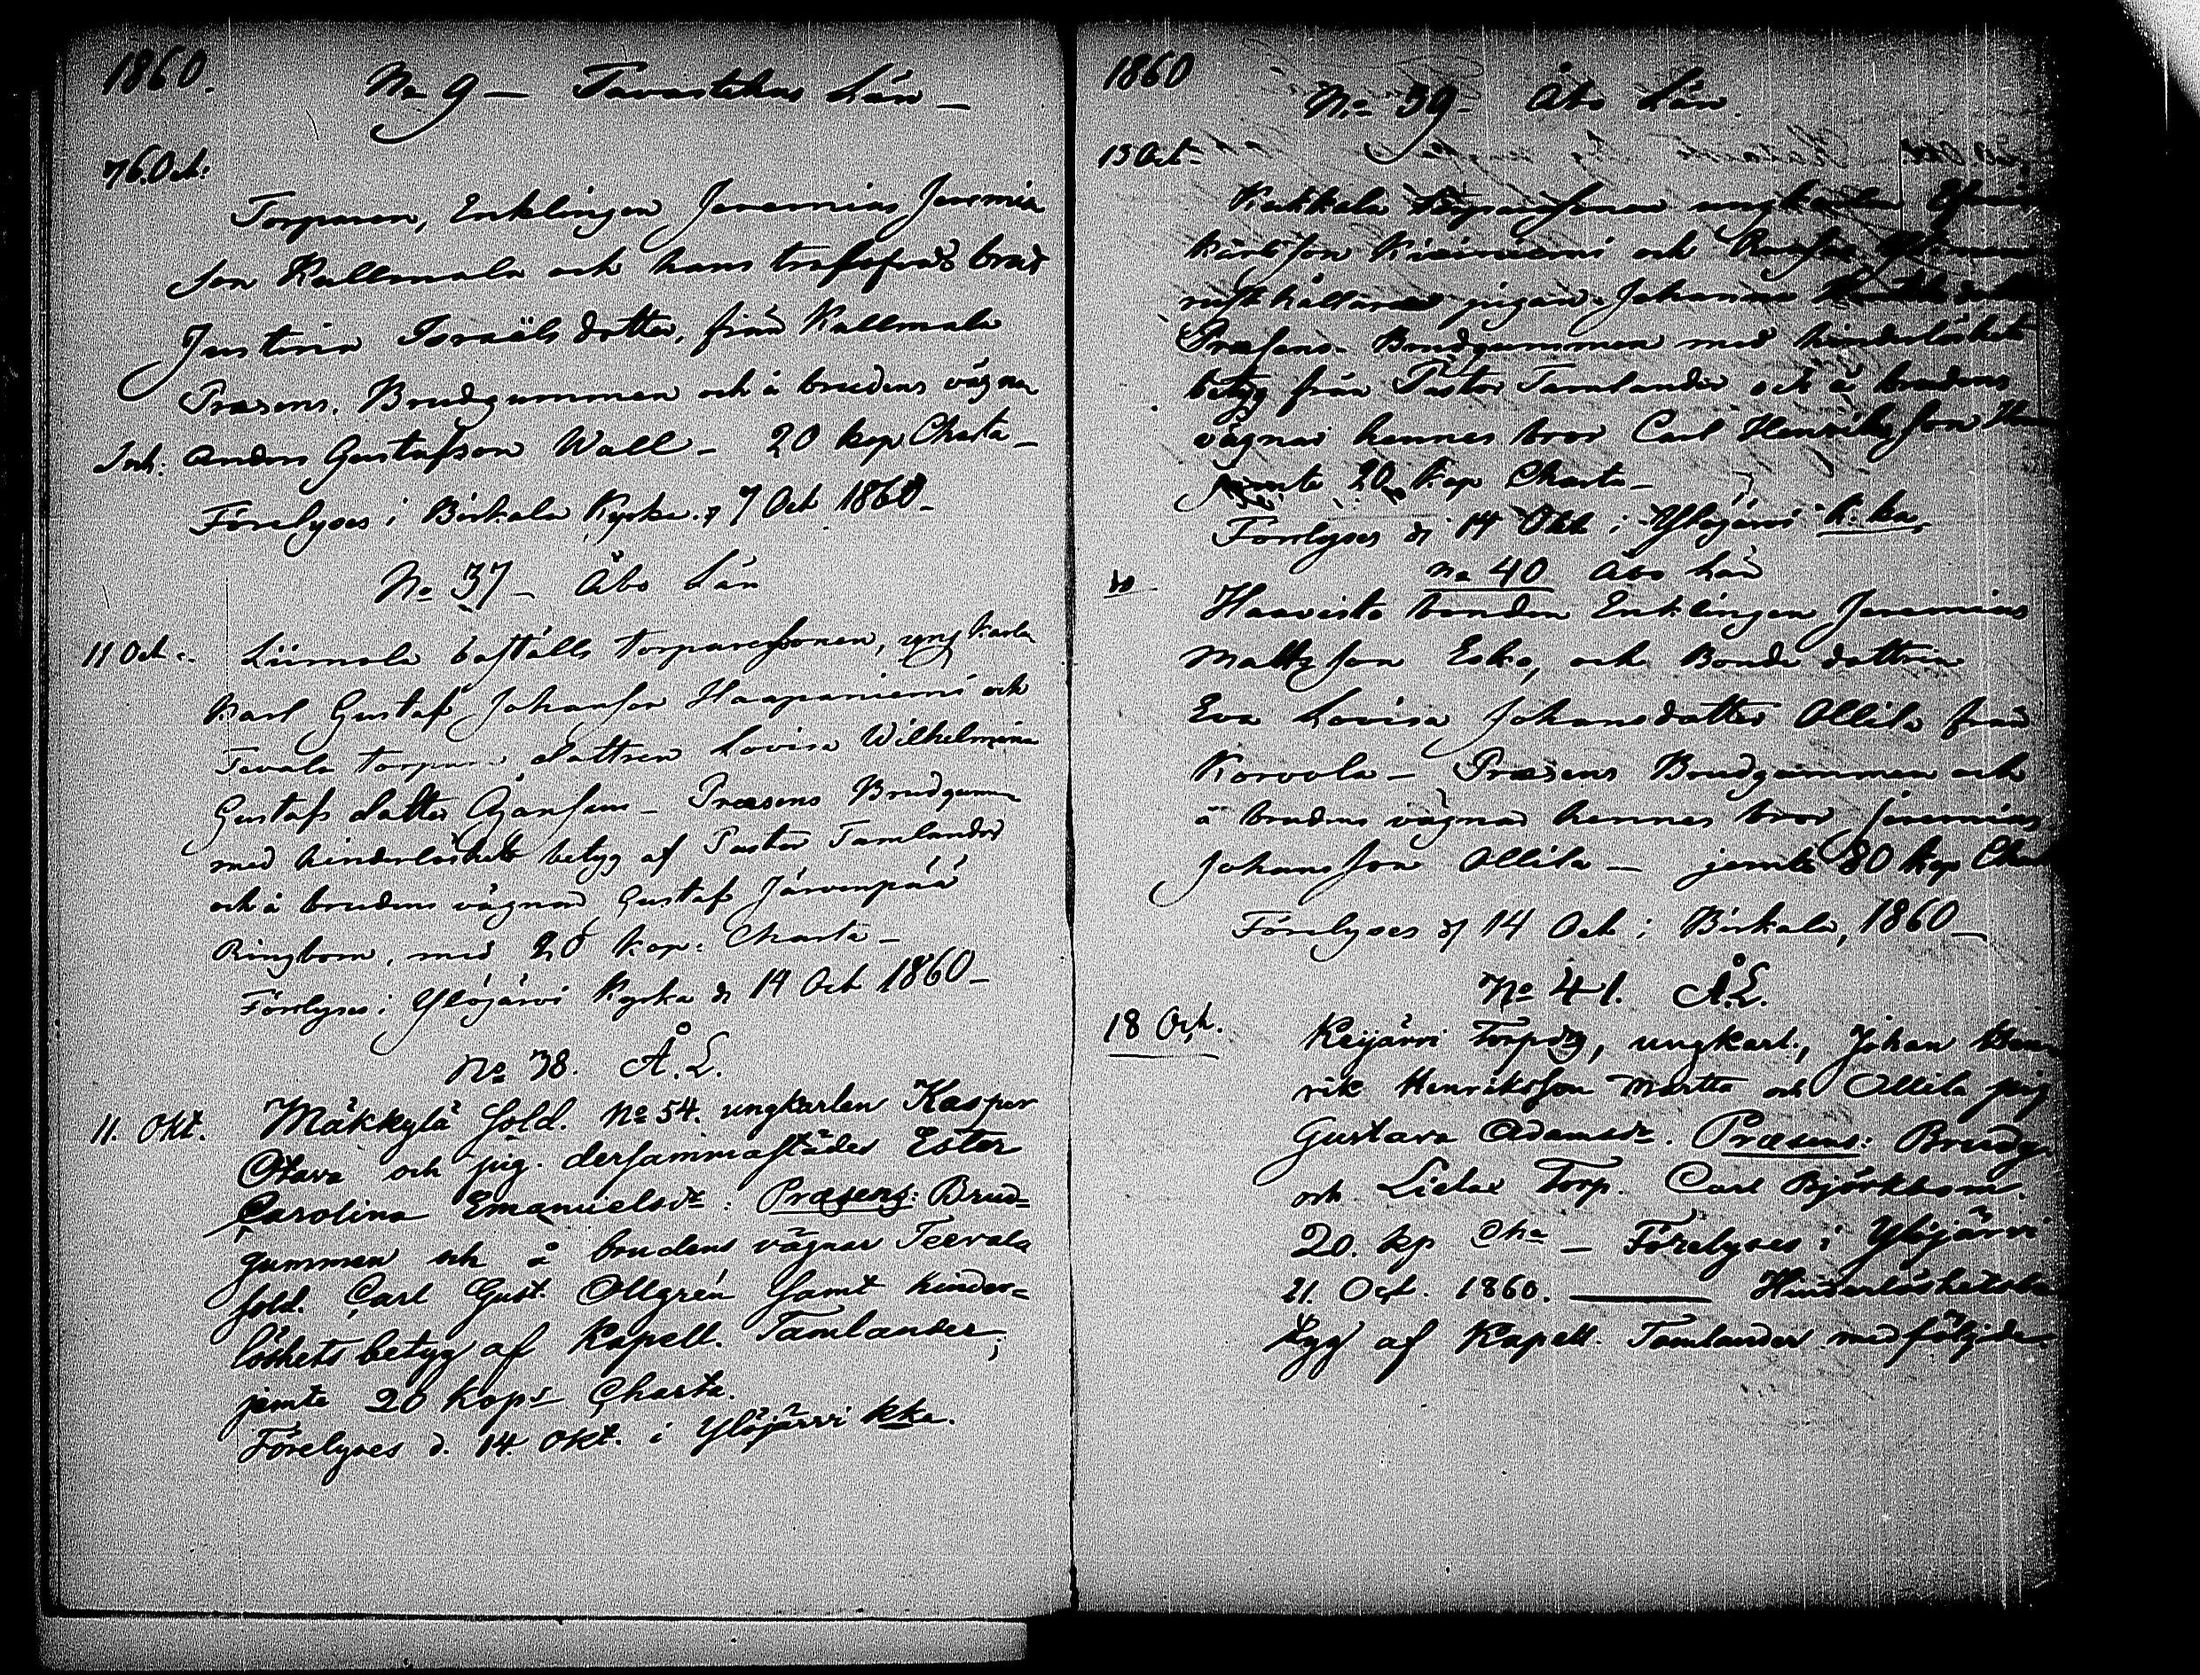 1860.
No 9 — Tavastehus Län —
76. Oct:
Torparen, Enklingen Jeremias Jeremia
son Kallmala och hans brud
Justina Israels dotter, från Kallmala
Præsens. Brudgummen och å brudens vägnar
Inh: Anders Gustafsson Wall — 20 kop Charta —
Förelyses i Birkala Kyrka. d 7 Oct 1860 —
No 37 — Åbo Län
11 Oct.
Liimola boställs torparesonen, ungkarln
Karl Gustaf Johansson Haapaniemi och
Tevala torpare dottren Lovisa Wilhelmina
Gustafs dotter — Præsens Brudgumm
med hinderlöshets betyg af Pastor Tamlander
och å brudens vägnar Gustaf Järvenpää
Ringbom, med 20 kop: Charta —
Förelyses i Ylöjärvi Kyrka d 14 Oct 1860 —
No 38. Å. L.
11. Okt.
Mäkkylä sold. No 54. ungkarlen Kasper
Otava och pig. dersammastädes Ester
Carolina Emanuelsdr: Præsens: Brud=
gummen och å brudens vägnar Teevala
sold. Carl Gust. Ollgrén samt hinder=
löshets betyg af Kapell. Tamlander;
jemte 20 kops Charta.
Förelyses d. 14 Okt. i Ylöjärvi kka.
1860
No 39 — Åbo Län
13 Oct —
Kukkola torparesonen ungkarlen
Karlsson Kiviniemi och
rusthållares pigan Johanna
Præsens. Brudgummen med hinderlöshets
betyg från Pastor Tamlander och å brudens
vägnar hennes bror Carl Henriksson
jemte 20 Kop Charta —
Förelyses d 14 Okt i Ylöjärvi K. ka.
No 40 Åbo Län
Haavisto bonden Enklingen Jeremias
Mattsson Esko, och Bonde dottren
Eva Lovisa Johansdotter Ollila från
Korvola — Præsens Brudgummen och
å brudens vägnar hennes bror Jeremias
Johansson Ollila — jemte 80 kop Cha
Förelyses d 14 Oct i Birkala, 1860 —
No 41. Å. L.
18 Oct.
Keijärvi Torp, ungkarl., Johan Hen
rik Henriksson Martta och Ollila pig
Gustava Adamsdr. Præsens: Brudg.
och Torp. Carl Björkbom.
20. kp Cha — Förelyses i Ylöjärvi
21. Oct. 1860. — Hinderlöshetsbe
tyg af Kapell. Tamlander medföljde.